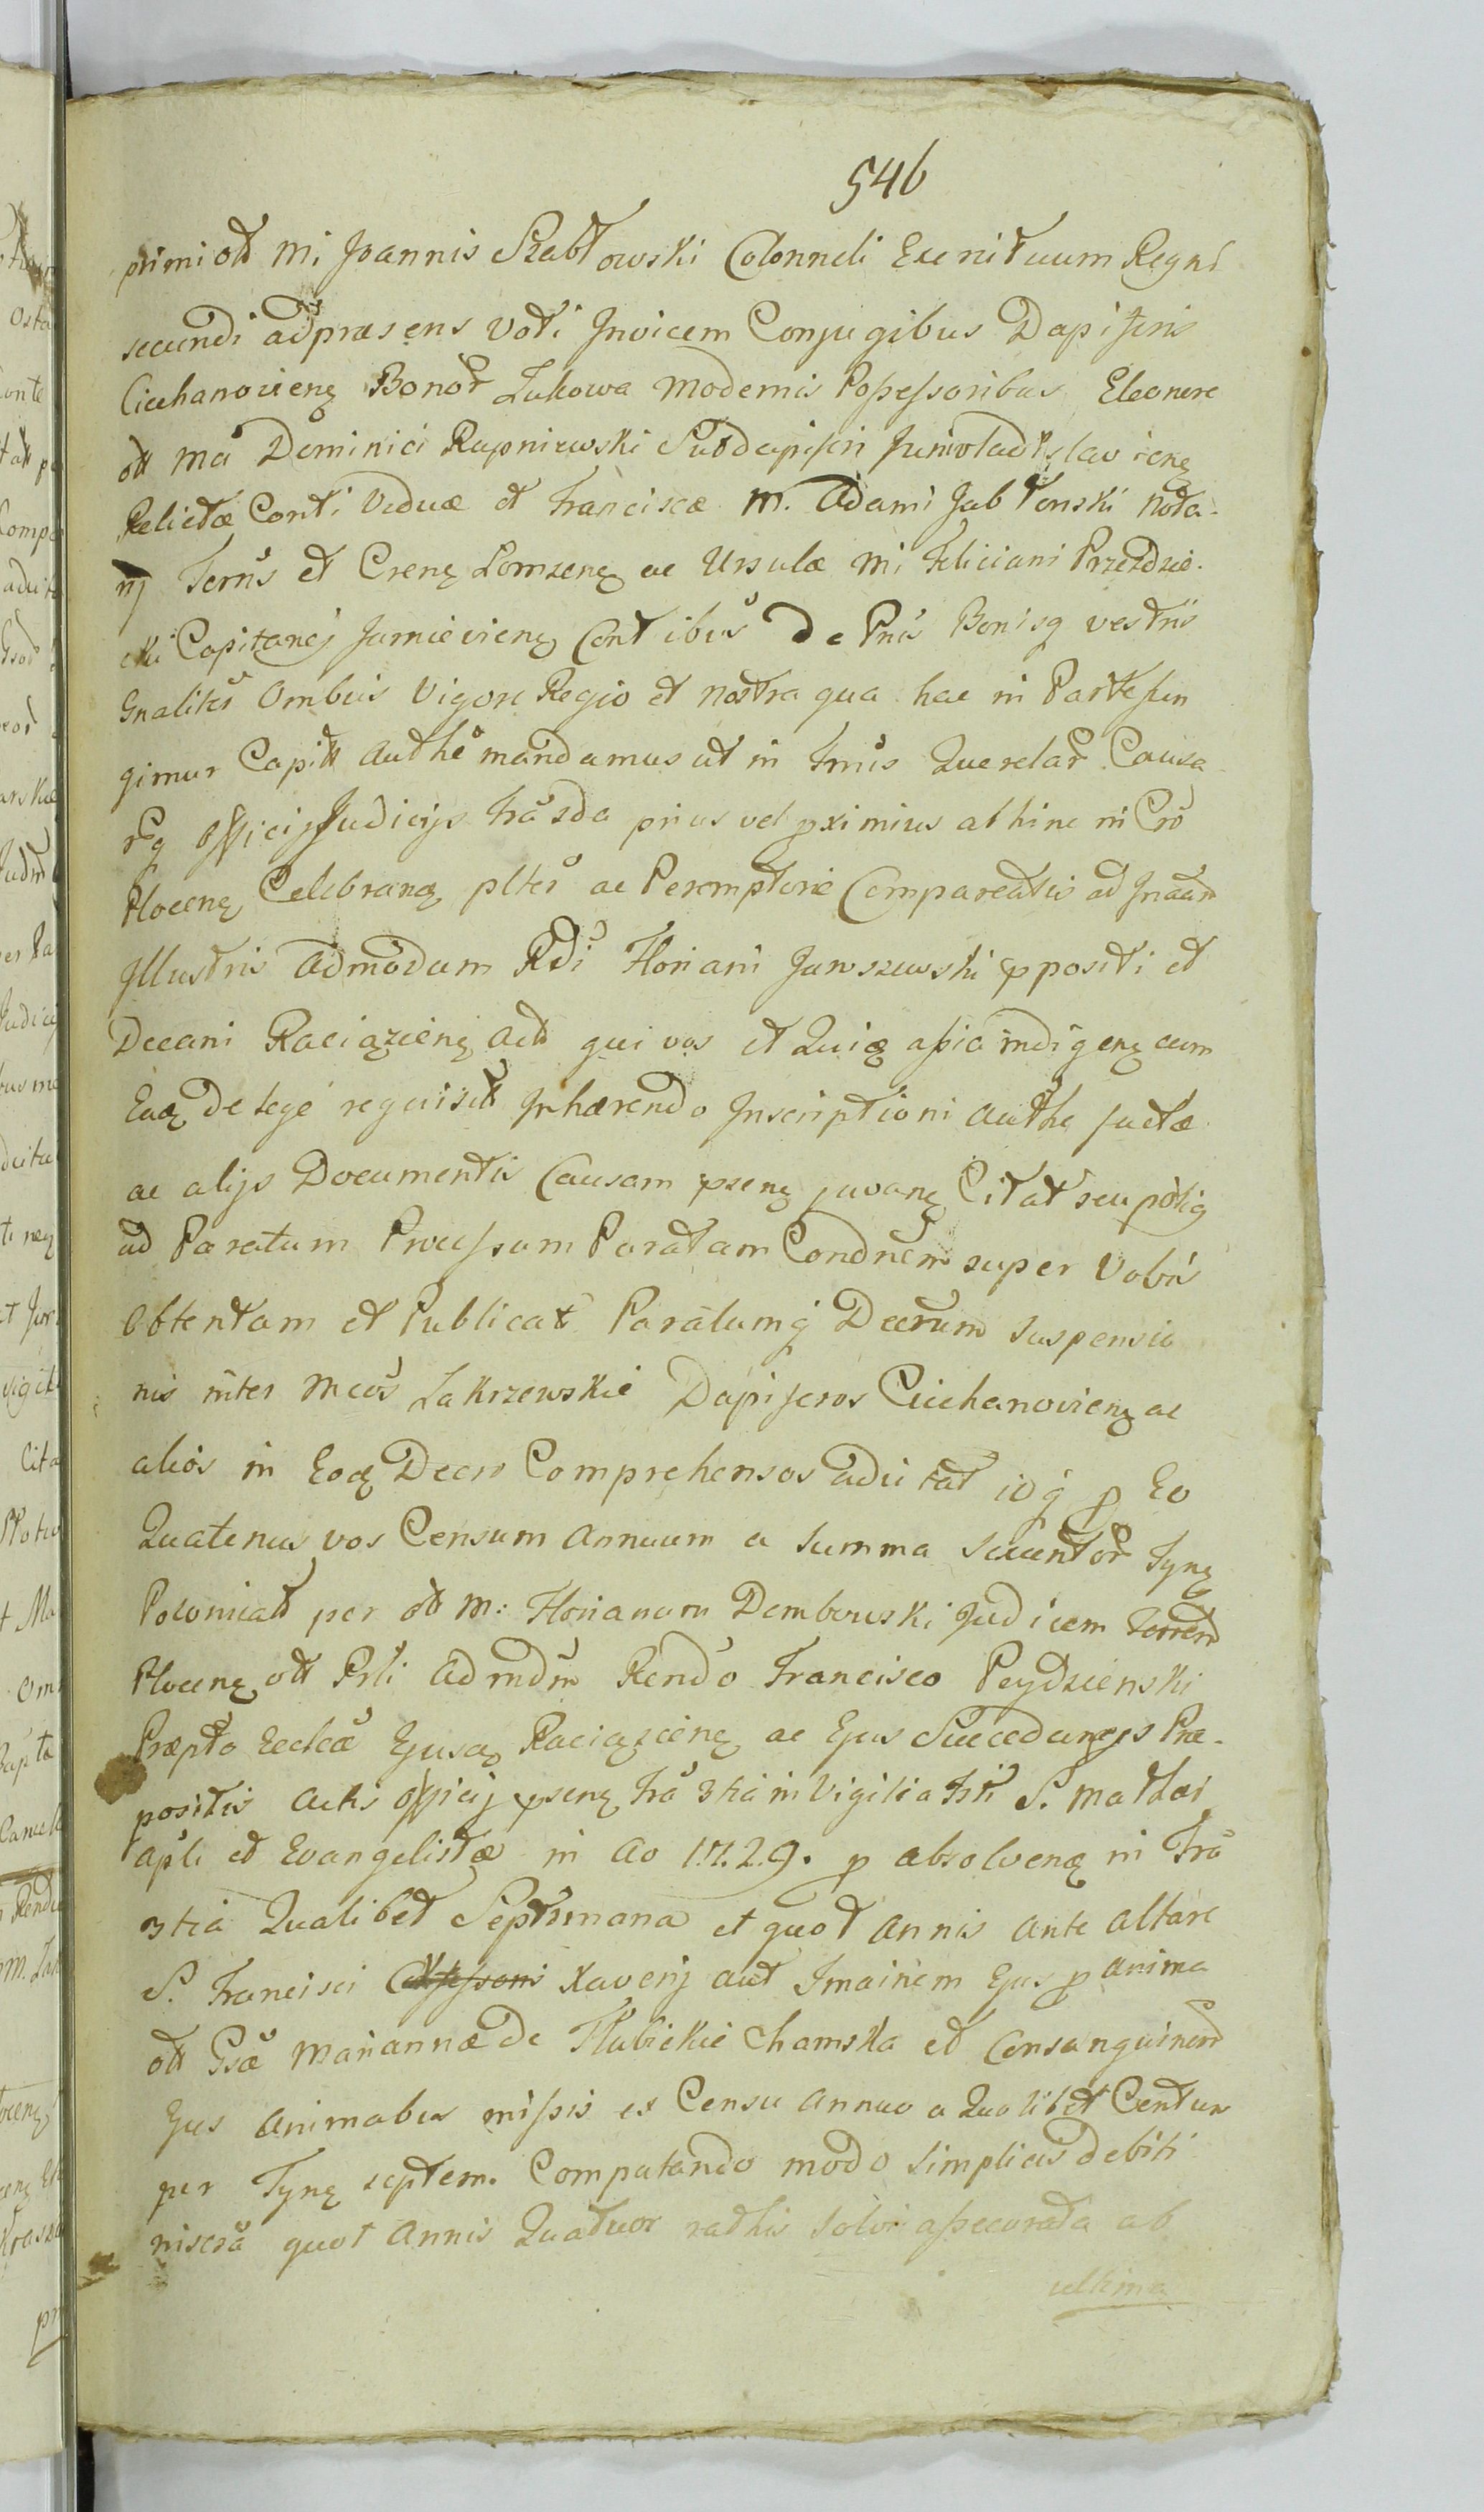 546
primi olt Mi Joannis Szabłowski Colonneli Exercituum Regni
secundi ad præsens voti Invicem Conjugibus Dapiferis
Ciechanovieng Bonor Łukowa Modernis Possessoribus Eleonore
olt Ma Dominici Rupniewski Subdapiferi Juniwladislavieng
Relictæ Conti Viduæ et Franciscæ M. Adami Jabłonski Nota-
rij Terris et Creng Łomzeng ac Ursulæ Mi Feliciani Przezdzie-
cki Capitanej Contibus De Pnis Bonisq vestris
Gnaliter Ombus Vigore Regio et nostra qua hac in Parte fun
gimur Captt Authe mandamus ut in Tmis Querelar Causa
rq Officij Judicijs fra 3da prius vel pximius ab hinc in Cro
Ploceng Celebrang plter ac Peremptorie Compareatis ad Jnaam
Illustris Admodum Rdi Floriani Jaroszewski ppositi et
Decani Raciązieng Act qui vos et Quiq assia indigeng cum
Eaq De lege requisit Inhærendo Inscriptioni Authe factæ
ac alijs Documentis Causam pseng juvang Citat seu potig
ad Paratum Processum Paratam Condnem super Vobis
Obtentam et Publicat Paratumq Decrum suspensio
nis inter Mcos Zakrzewskie Dapiferos Ciechanovieng ac
alios in Eoq Decro Comprehensos adcitat idq p Eo
Quatenus vos Censum Annuum a Summa Ducentor Tyng
Polonicalt per olt M: Florianum Dembowski Judicem Terrem
Ploceng olt Prli Admdm Rendo Francisco Peydzienski
Præpto Eccleæ Ejusq Raciązieng ac Ejus Succedaneis Præ-
positis Actis Officij pseng fra 3tia in Vigilia Fsti S. Mathæi
Apli et Evangelistæ in Ao 1.7.2.9. p absolveng in fra
3tia Qualibet Septimana et quot Annis ante altare
S. Francisci Xaverij aut Imainem Ejus p anima
olt Gsæ Mariannæ De Hlubickie Chamska et Consanguineor
Ejus Animabus missis ex Censu annuo a Quolibet Centum
per Tyng septem. Computando modo simplicis debiti
niscra quot Annis Quatuor rathis solvi assecurata ab
ultima